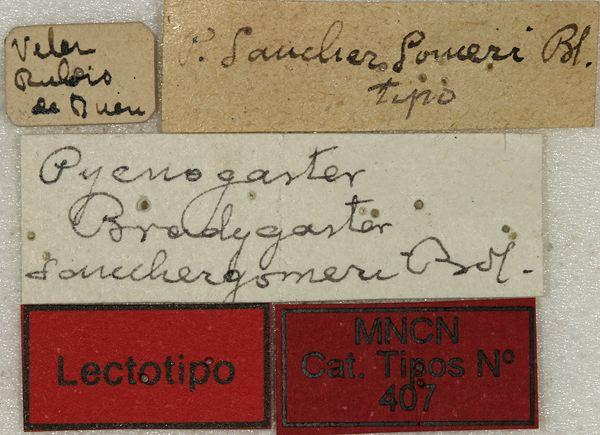 Velez
Rubio
P. Sanchez Gomezi Bl.
tipo
Pycnogaster
Bradygaster
sanchezgomezi Bol.
Lectotipo
MNCN
Cat. Tipos Nº
407